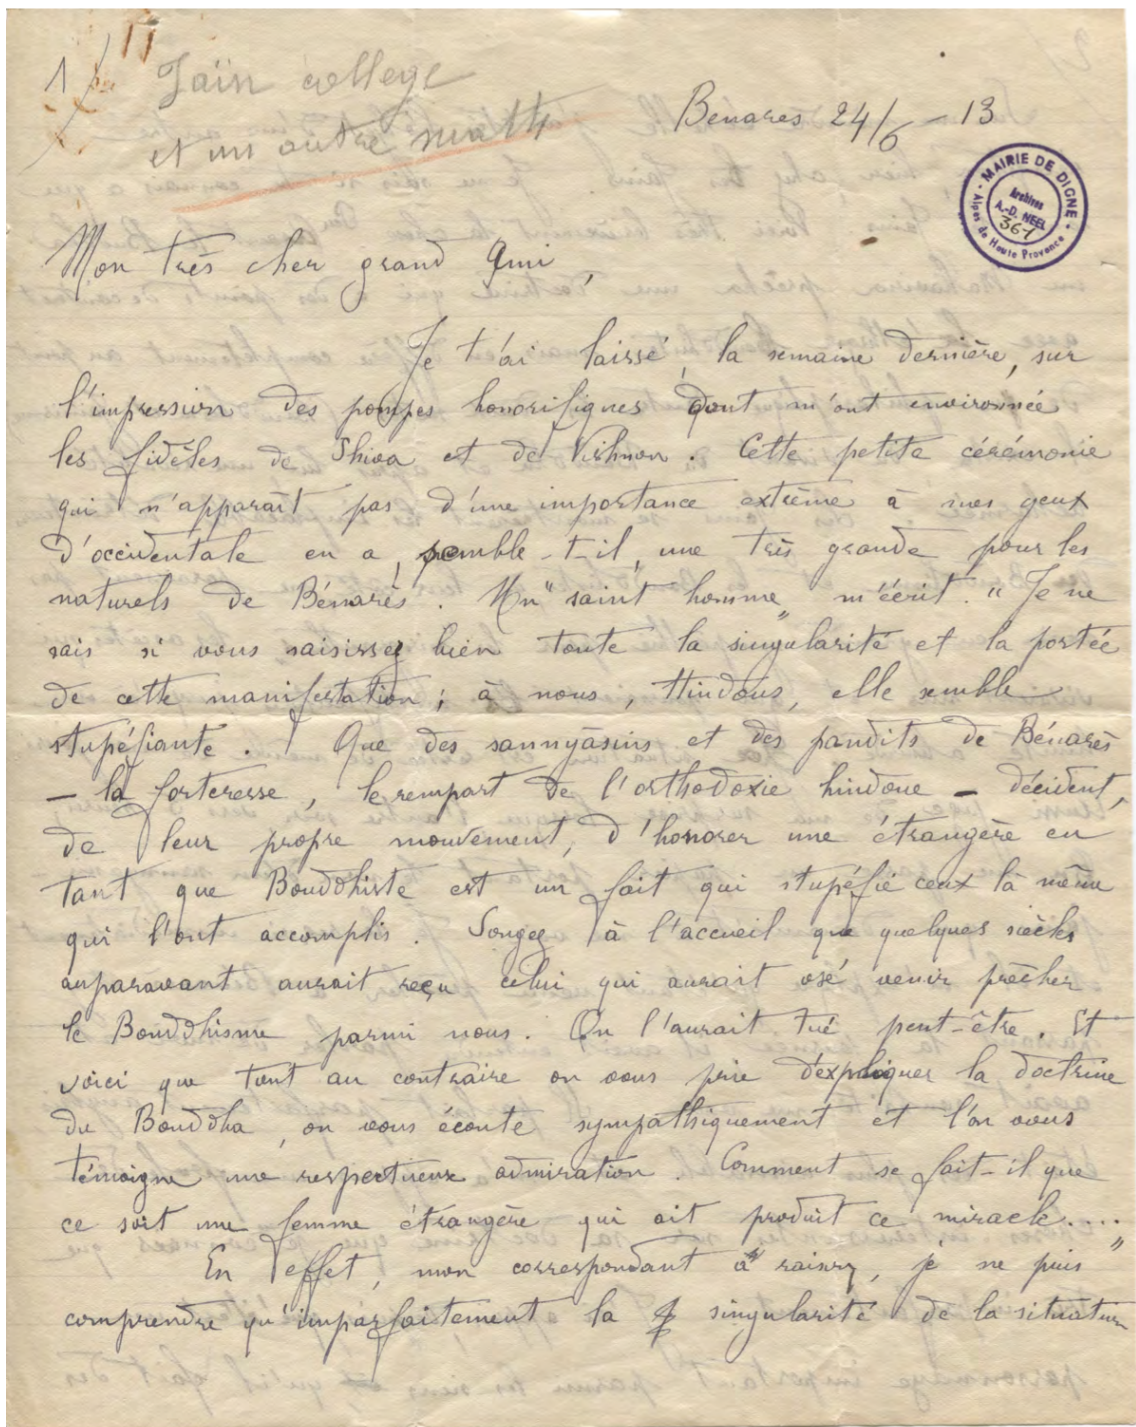 1
Jaïn college
et un autre math
Benares 24/6 - 13
MAIRIE DE DIGNE
Archives
A.-D. NEEL
367
Alpes de Haute Provence
Mon très cher grand Ami,
Je t'ai laissé, la semaine dernière, sur
l'impression des pompes honorifiques dont m'ont environnée
les fidèles de Shiva et de Vishnou. Cette petite cérémonie
qui n'apparaît pas d'une importance extrême à mes yeux
d'occidentale en a, semble-t-il, une très grande pour les
naturels de Bénarès. Un "saint homme" m'écrit. "Je ne
sais si vous saisissez bien toute la singularité et la portée
de cette manifestation; à nous, Hindous, elle semble
stupéfiante. Que des sannyâsins et des pandits de Bénarès
– la forteresse, le rempart de l'orthodoxie hindoue – décident,
de leur propre mouvement, d'honorer une étrangère en
tant que Bouddhiste est un fait qui stupéfie ceux là même
qui l'ont accomplis. Songez à l'accueil que quelques siècles
auparavant aurait reçu celui qui aurait osé venir prêcher
le Bouddhisme parmi nous. On l'aurait tué peut-être. Et
voici que tout au contraire on vous prie d'expliquer la doctrine
du Bouddha, on vous écoute sympathiquement et l'on vous
témoigne une respectueuse admiration. Comment se fait-il que
ce soit une femme étrangère qui ait produit ce miracle...."
En effet, mon correspondant a raison, je ne puis
comprendre qu'imparfaitement la singularité de la situation